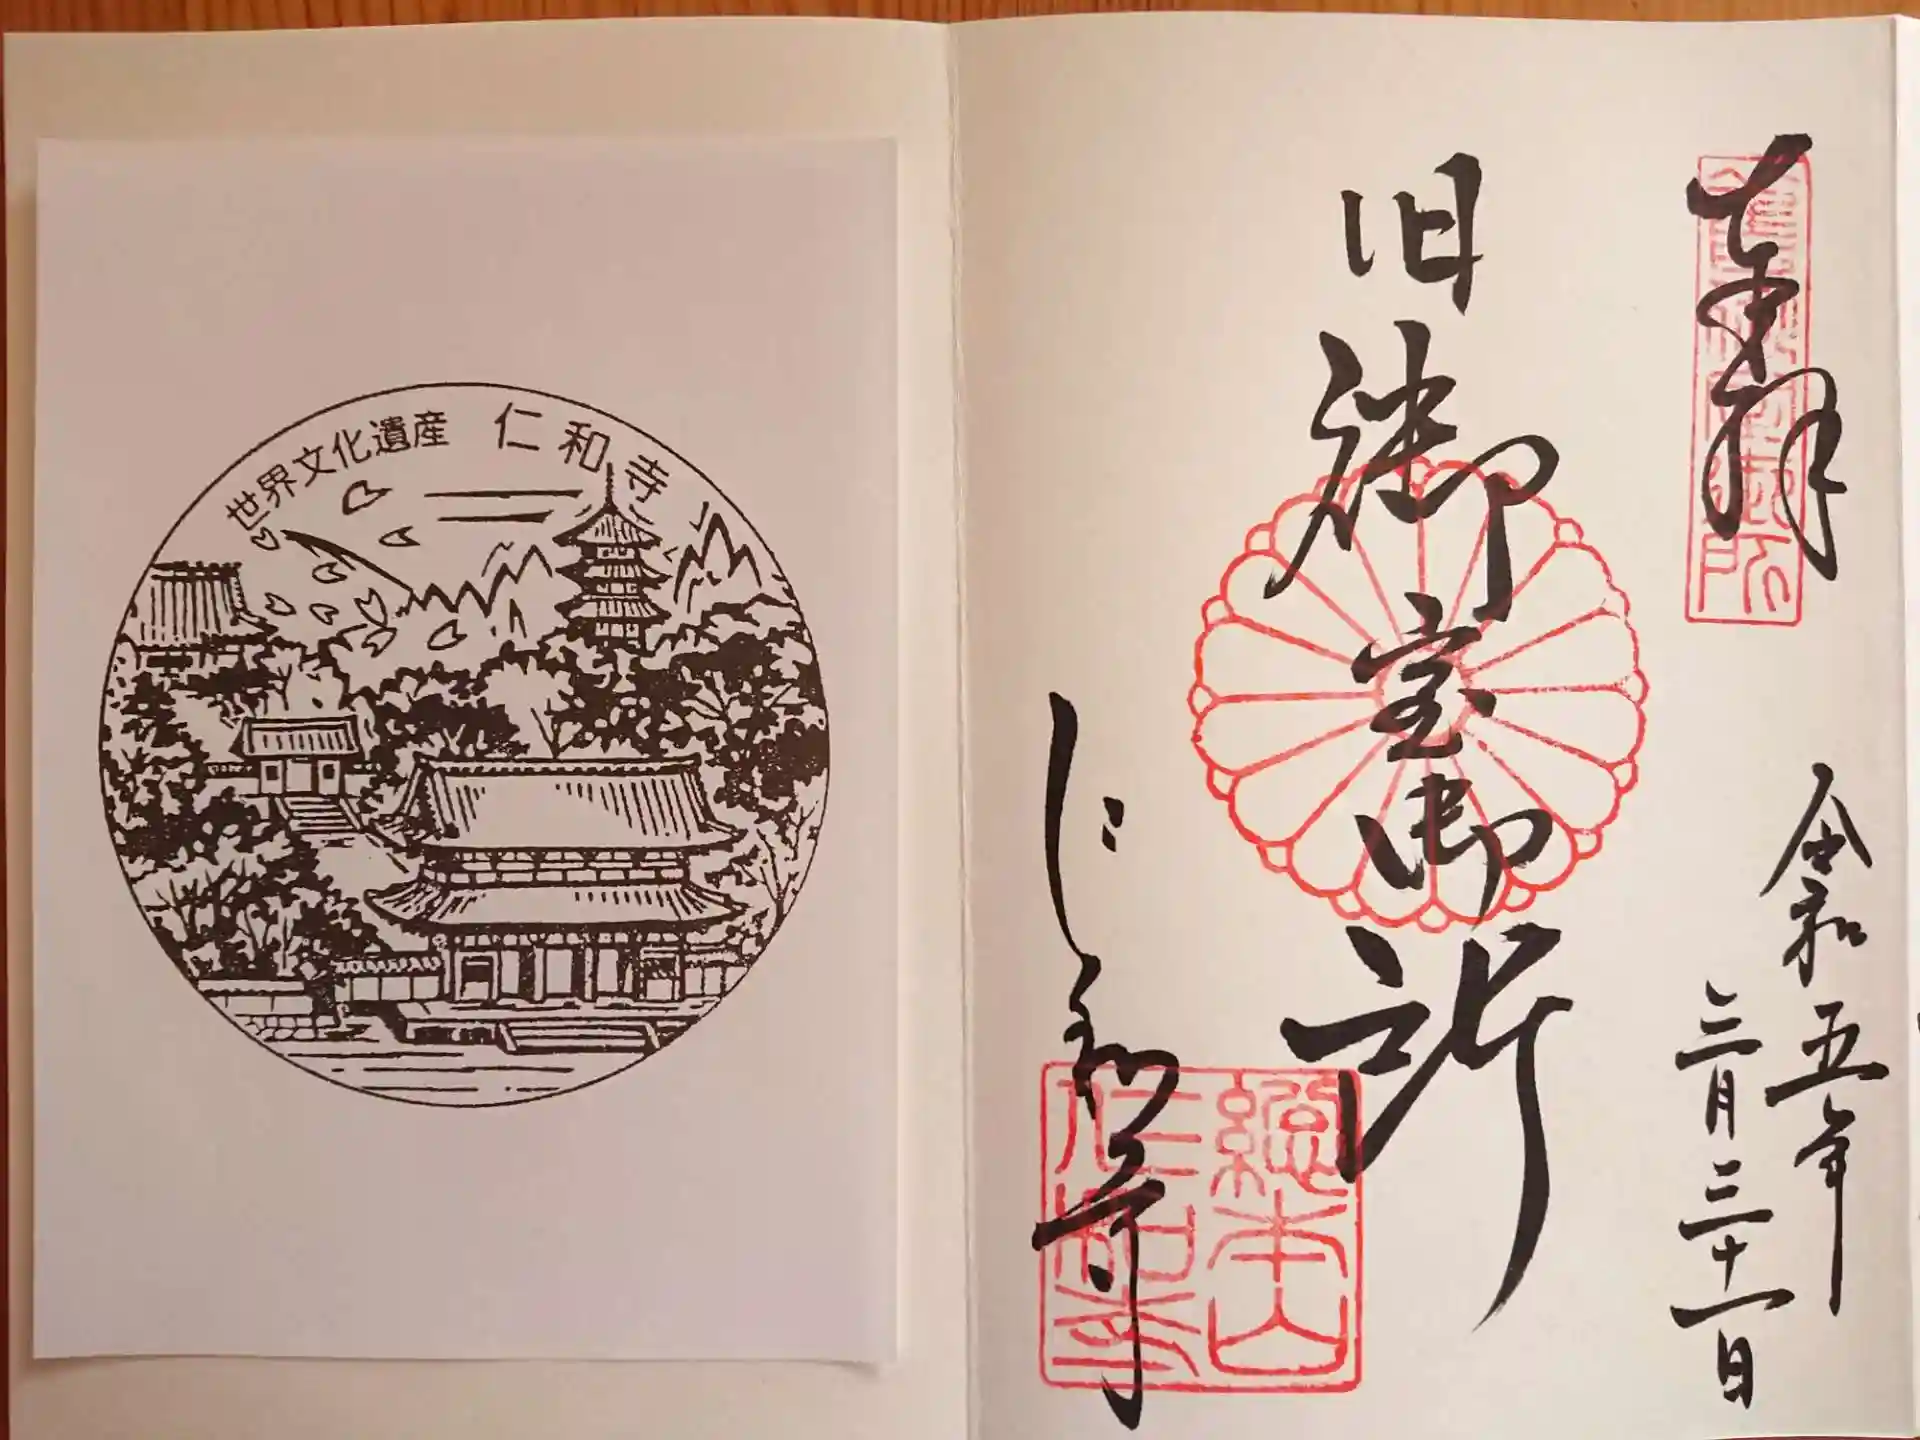 世界文化遺産 仁和寺
奉拝
令和五年
三月三十一日
旧御室御所
仁和寺
旧御室御所
總本山
仁和寺